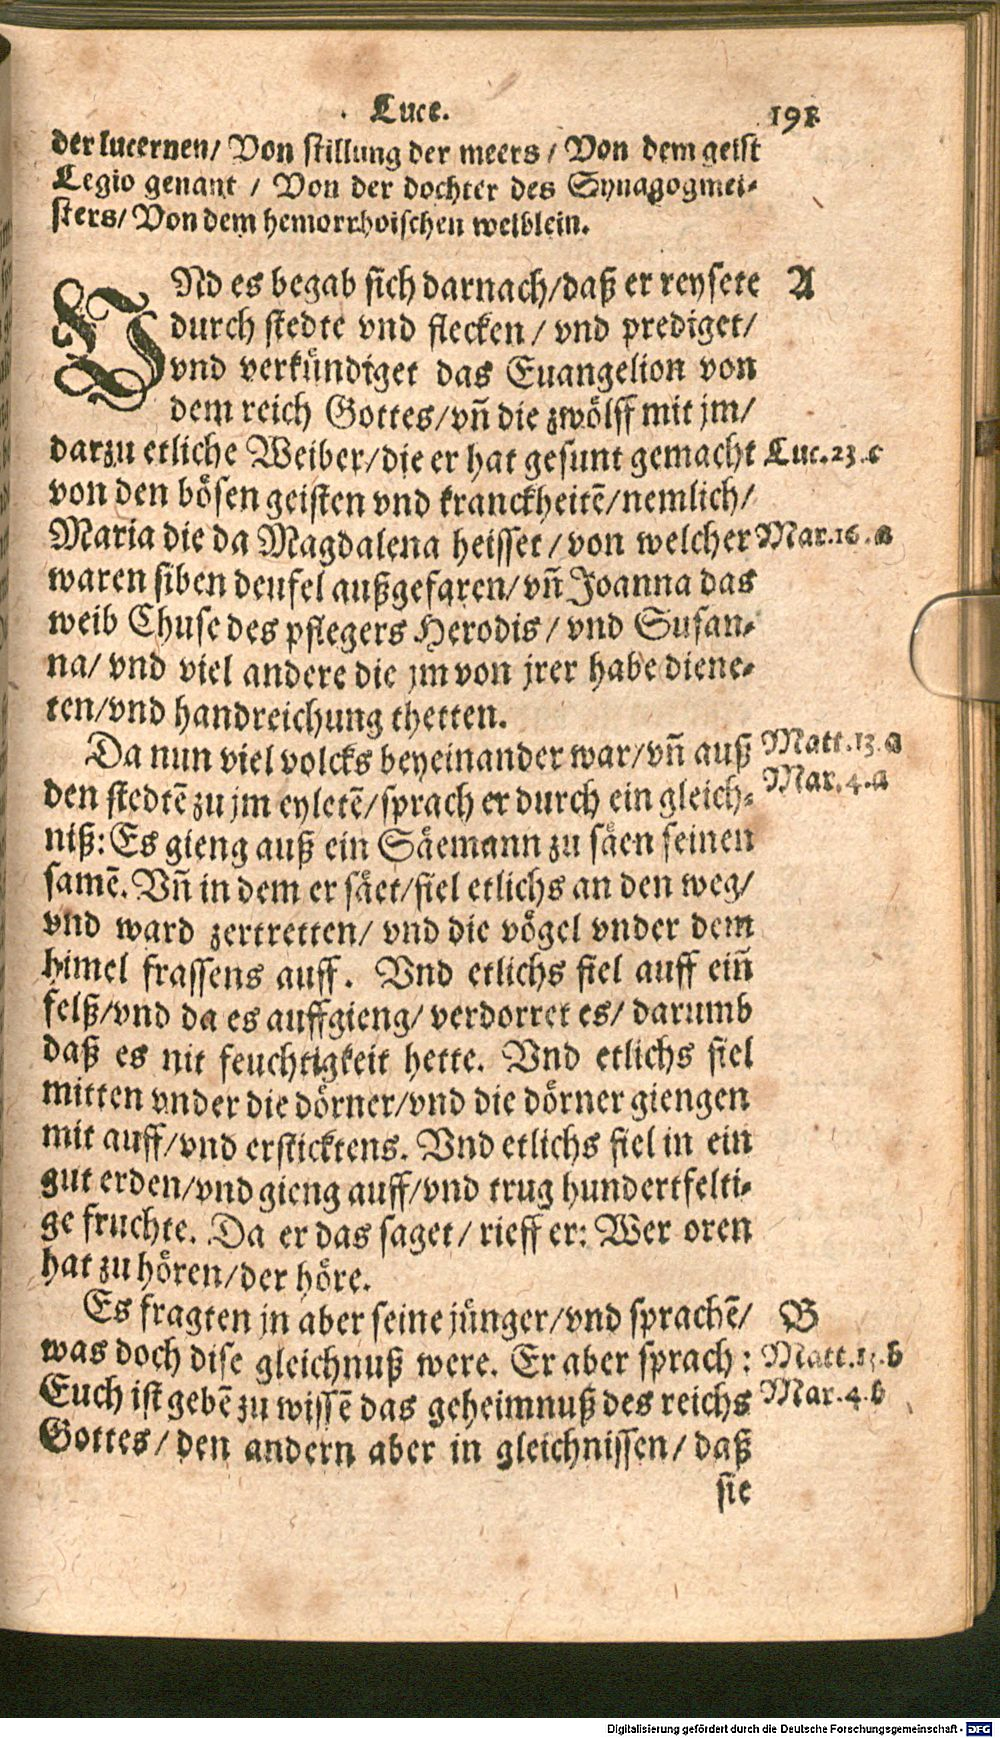 Luce. 191
der lucernen/ Von stillung der meers/ Von dem geist
Legio genant / Von der dochter des Synagogmei⸗
sters/ Von dem hemorrhoischen weiblein.
VNd es begab sich darnach/daß er reysete A
durch stedte vnd flecken/ vnd prediget/
vnd verkündiget das Euangelion von
dem reich Gottes/vñ die zwölff mit jm/
darzu etliche Weiber/die er hat gesunt gemacht Luc.23.c
von den bösen geisten vnd kranckheitē/nemlich/
Maria die da Magdalena heisset/von welcher Mar.16.a
waren siben deufel außgefaren/vñ Joanna das
weib Chuse des pflegers Herodis/ vnd Susan⸗
na/ vnd viel andere die jm von jrer habe diene⸗
ten/vnd handreichung thetten.
Da nun viel volcks beyeinander war/vñ auß Matt.13.a
den stedtē zu jm eyletē/sprach er durch ein gleich⸗ Mar.4.a
niß: Es gieng auß ein Säemann zu säen seinen
samē. Vñ in dem er säet/fiel etlichs an den weg/
vnd ward zertretten/ vnd die vögel vnder dem
himel frassens auff. Vnd etlichs fiel auff eiñ
felß/vnd da es auffgieng/ verdorret es/ darumb
daß es nit feuchtigkeit hette. Vnd etlichs fiel
mitten vnder die dörner/vnd die dörner giengen
mit auff/vnd ersticktens. Vnd etlichs fiel in ein
gut erden/vnd gieng auff/vnd trug hundertfelti⸗
ge fruchte. Da er das saget/ rieff er: Wer oren
hat zu hören/der höre.
Es fragten jn aber seine jünger/vnd sprachē/ B
was doch dise gleichnuß were. Er aber sprach: Matt.13.b
Euch ist gebē zu wissē das geheimnuß des reichs Mar.4.b
Gottes/ den andern aber in gleichnissen/ daß
sie
Digitalisierung gefördert durch die Deutsche Forschungsgemeinschaft - DFG